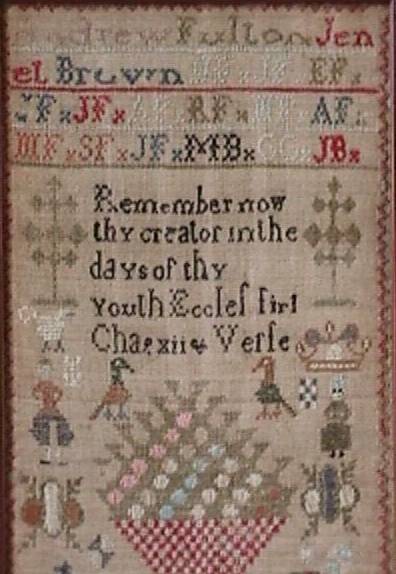 Andrew Fulton Jen
el Brown EF
JF x JF x RF x AF
MF x SF x JF x MB x JB x
Remember now
thy creator in the
days of thy
youth Eccles first
Chap xii & Verse